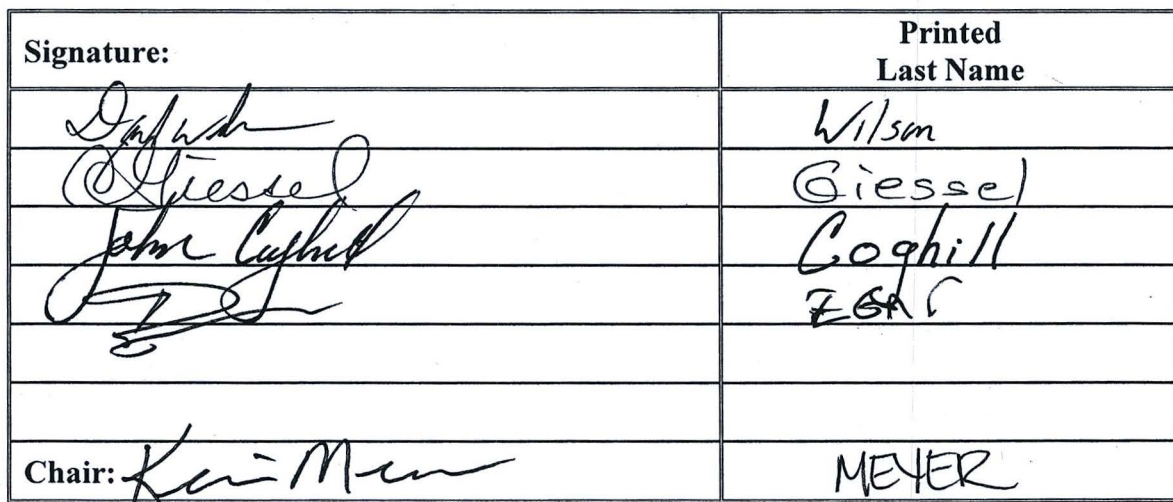 Signature: Printed
Last Name
Wilson
Giessel Giessel
John Coghill Coghill
Chair: Kevin Meyer MEYER